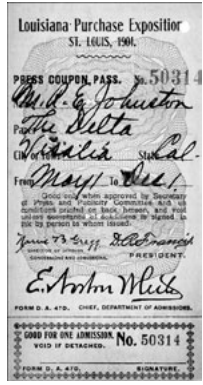 Louisiana Purchase Exposition
ST. LOUIS, 1904.
PRESS COUPON PASS. No. 50314
M. R. E. Johnston
Paper The Delta
City or town Visalia State Cal.
From May 1 To Dec 1
Good only when approved by Secretary
of Press and Publicity Committee and
conditions printed on back hereof, and void
unless signature of is signed in
ink by person to whom issued.
PRESIDENT.
E. Norton White
FORM D. A. 47D. CHIEF, DEPARTMENT OF ADMISSIONS.
GOOD FOR ONE ADMISSION. No. 50314
VOID IF DETACHED.
FORM D. A. 47D. SIGNATURE.